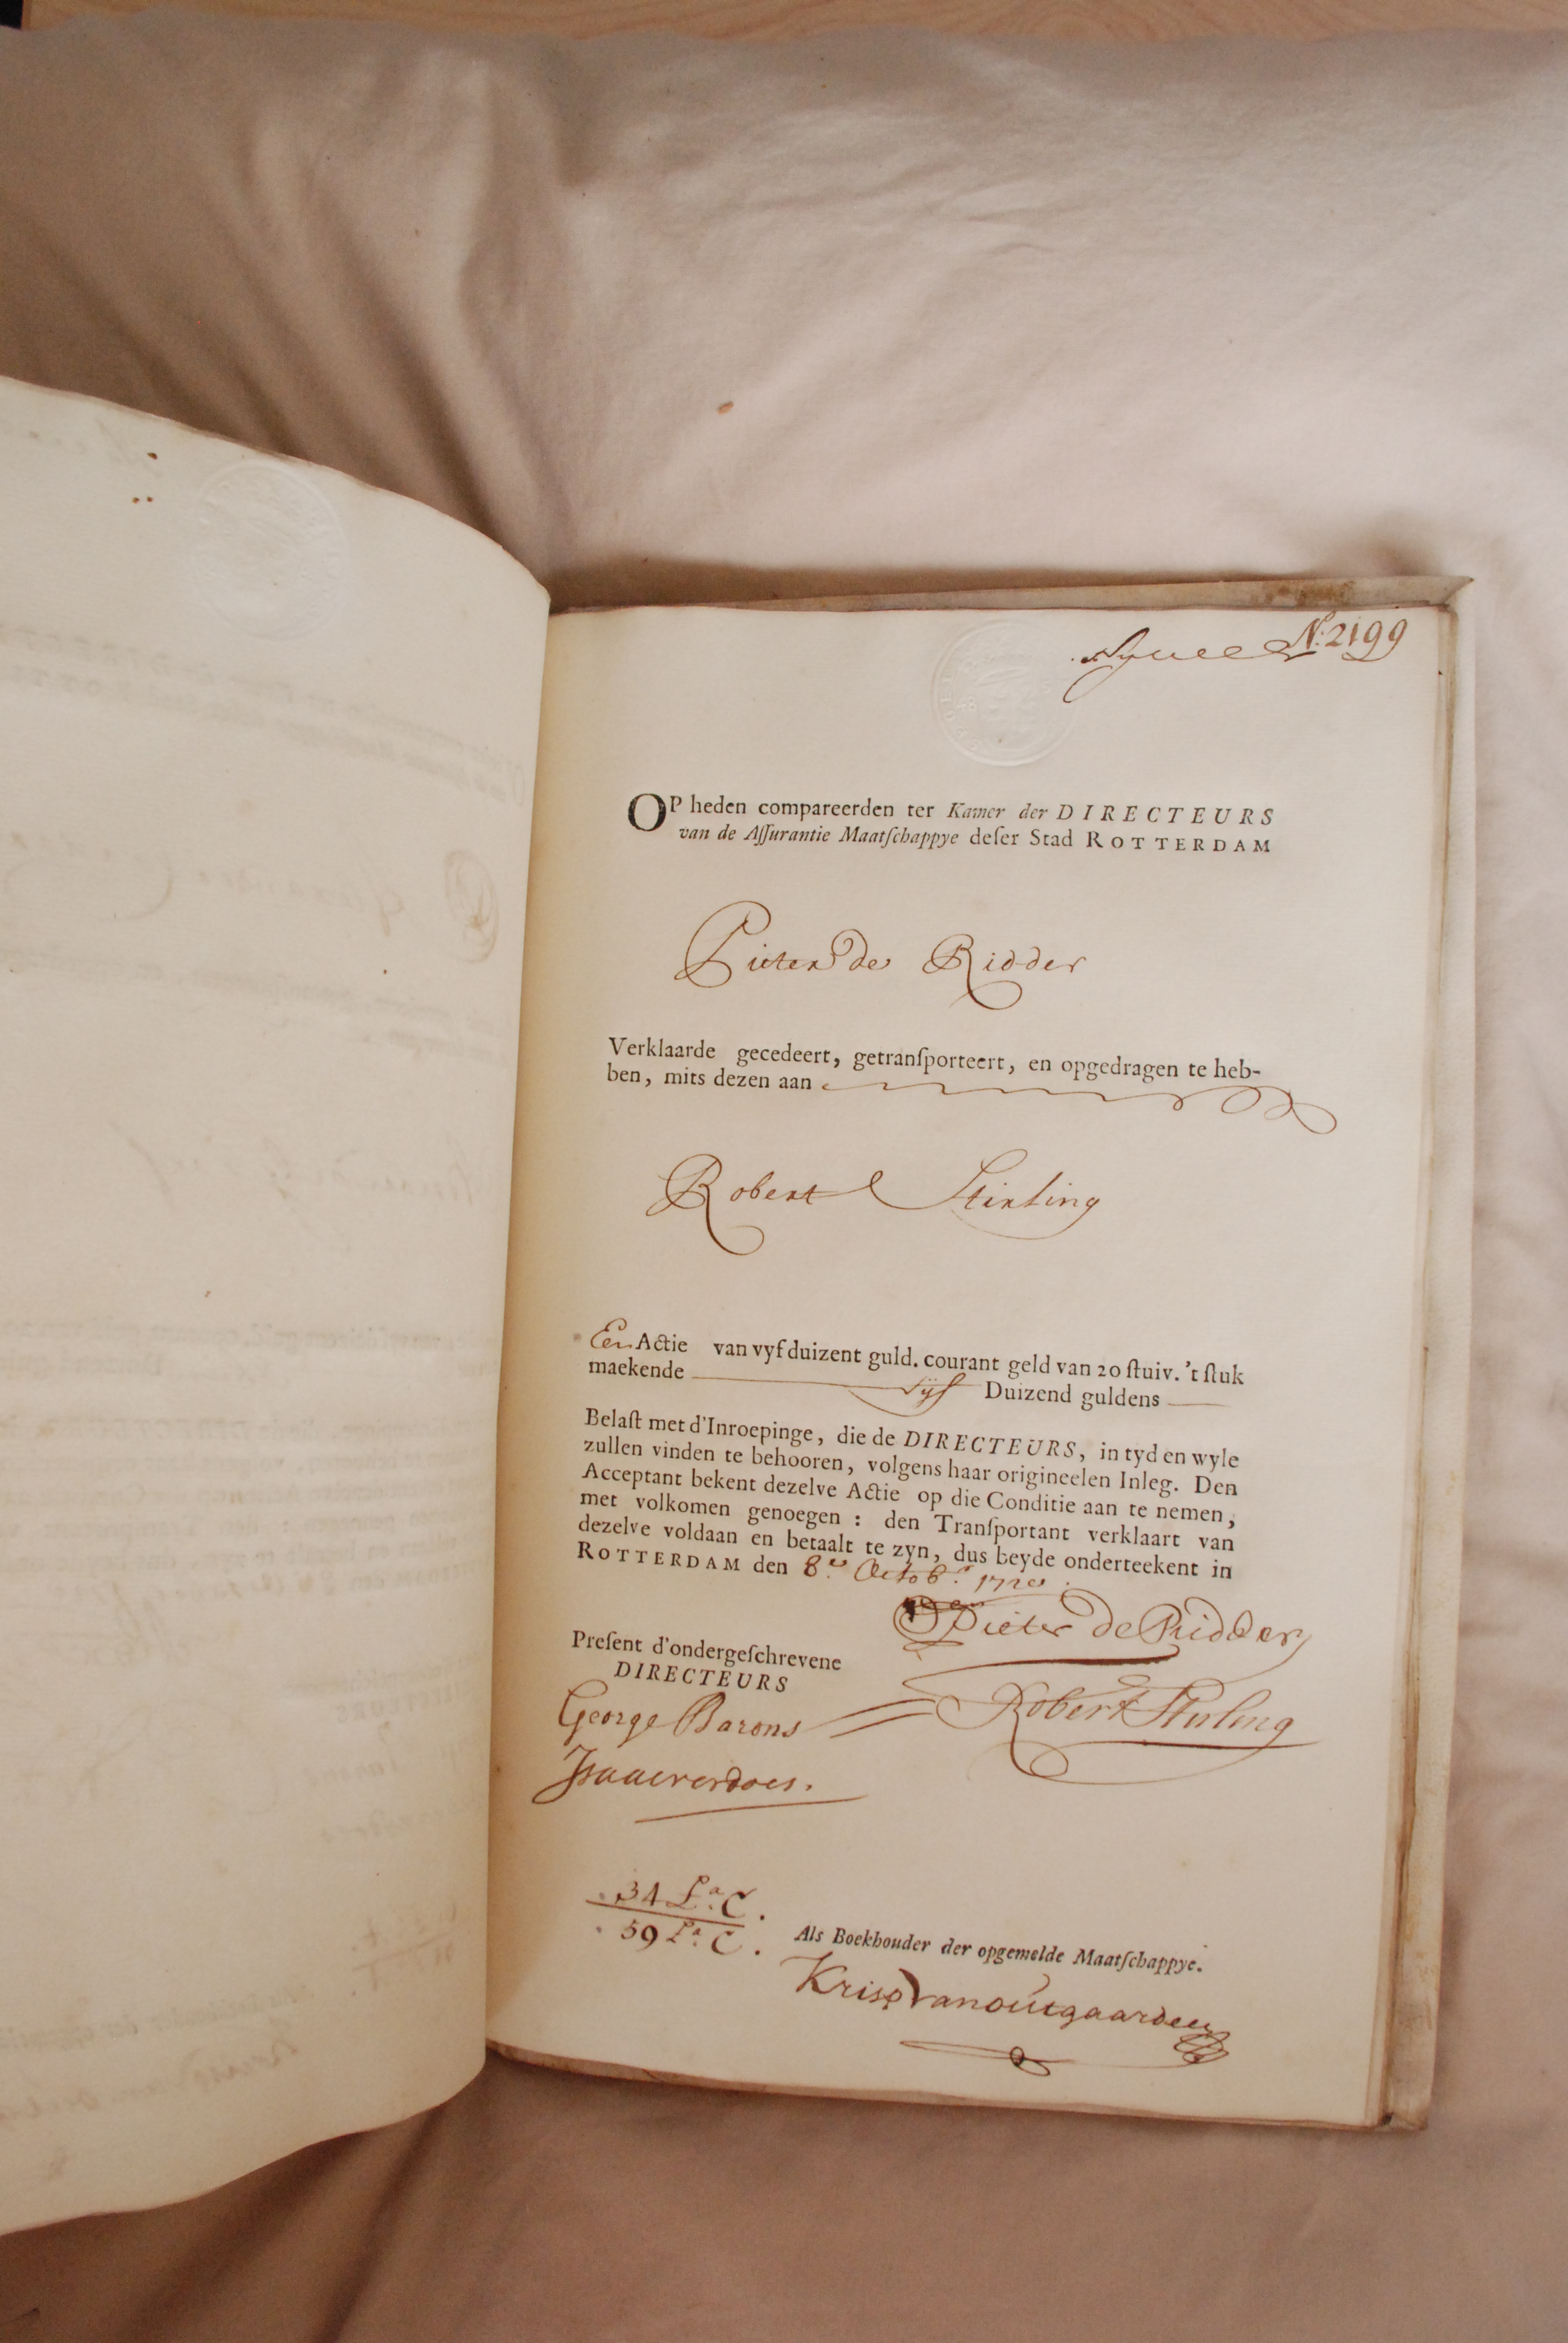 N: 2199
OP heden compareerden ter Kamer der DIRECTEURS
van de Aſſurantie Maatſchappye deſer Stad ROTTERDAM
Pieter de Ridder
Verklaarde gecedeert, getranſporteert, en opgedragen te heb-
ben, mits dezen aan
Robert Stirling
Een Actie van vyf duizent guld. courant geld van 20 ſtuiv. 't ſtuk
maekende vyf Duizend guldens
Belaſt met d'Inroepinge, die de DIRECTEURS, in tyd en wyle
zullen vinden te behooren, volgens haar origineelen Inleg. Den
Acceptant bekent dezelve Actie op die Conditie aan te nemen,
met volkomen genoegen : den Tranſportant verklaart van
dezelve voldaan en betaalt te zyn, dus beyde onderteekent in
ROTTERDAM den 8.en Octob.r 1720
Pieter de Ridder
Preſent d'ondergeſchrevene
DIRECTEURS
Robert Stirling
George Barons
Isaac verdoes.
34 L.a C.
59 L.a C.
Als Boekhouder der opgemelde Maatſchappye.
Krisp Vanoutgaarden